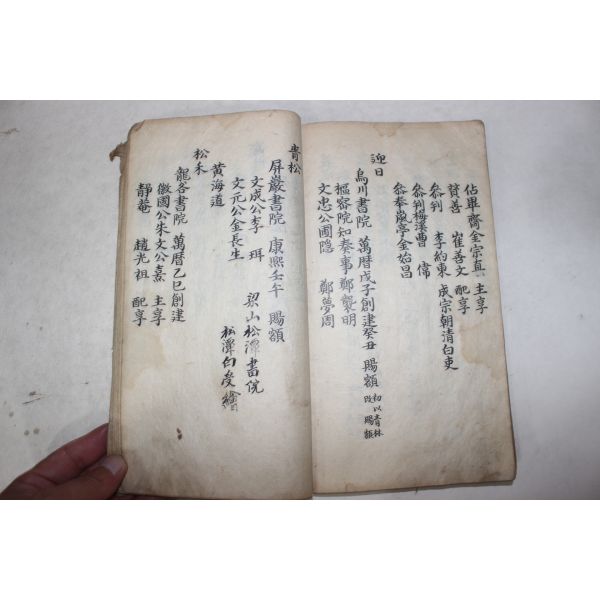 佔畢齋金宗直 主享
贊善 崔善文 配享
參判 李約東 成宗朝淸白吏
參判梅溪曹 偉
參奉嵐亭金始昌
迎日
烏川書院 萬曆戊子創建癸丑 賜額 初以靑林改賜額
樞密院知奏事鄭襲明
文忠公圃隱 鄭夢周
靑松
屛巖書院 康熙壬午 賜額
文成公李 珥 梁山松潭書院
文元公金長生 松潭白受繪
黃海道
松禾
龍谷書院 萬曆乙巳創建
徽國公朱文公熹 主享
靜菴 趙光祖 配享